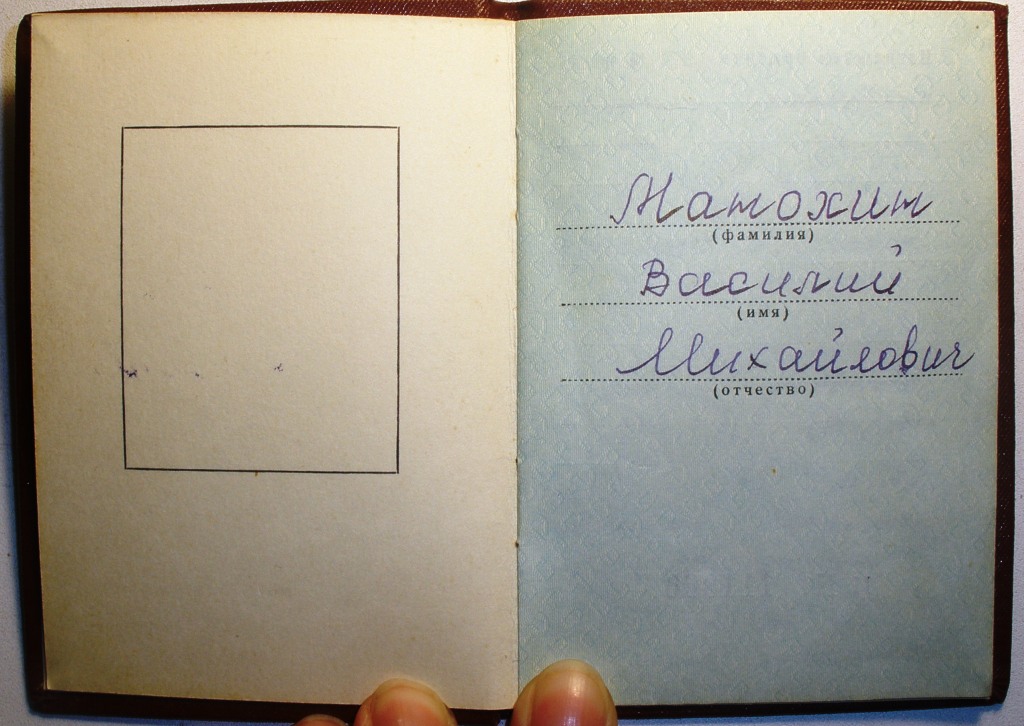 Матохин
(фамилия)
Василий
(имя)
Михайлович
(отчество)